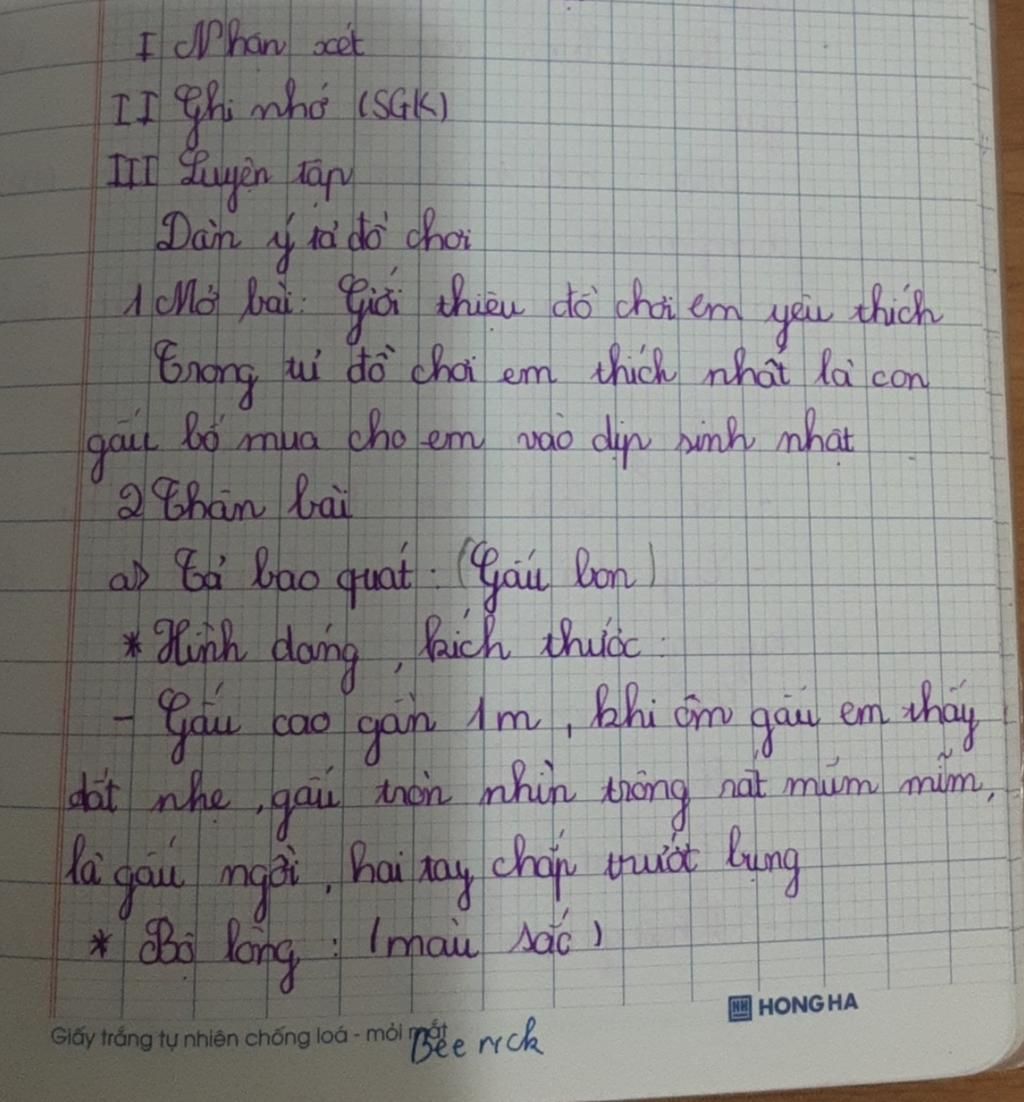 I Nhận xét
II Ghi nhớ (SGK)
III Luyện tập
Dàn ý tả đồ chơi
1 Mở bài: Giới thiệu đồ chơi em yêu thích
Trong tủ đồ chơi em thích nhất là con
gấu bố mua cho em vào dịp sinh nhật
2 Thân bài
a) Tả bao quát: (Gấu bon)
* Hình dáng, kích thước:
- Gấu cao gần 1m, khi ôm gấu em thấy
dất nhẹ, gấu tròn nhìn trông rất múm mĩm,
là gấu ngồi, hai tay chắp trướt bụng
* Bộ lông: (màu sắc)
HH HONG HA
Giấy trắng tự nhiên chống loá - mỏi mắt
Bee rick